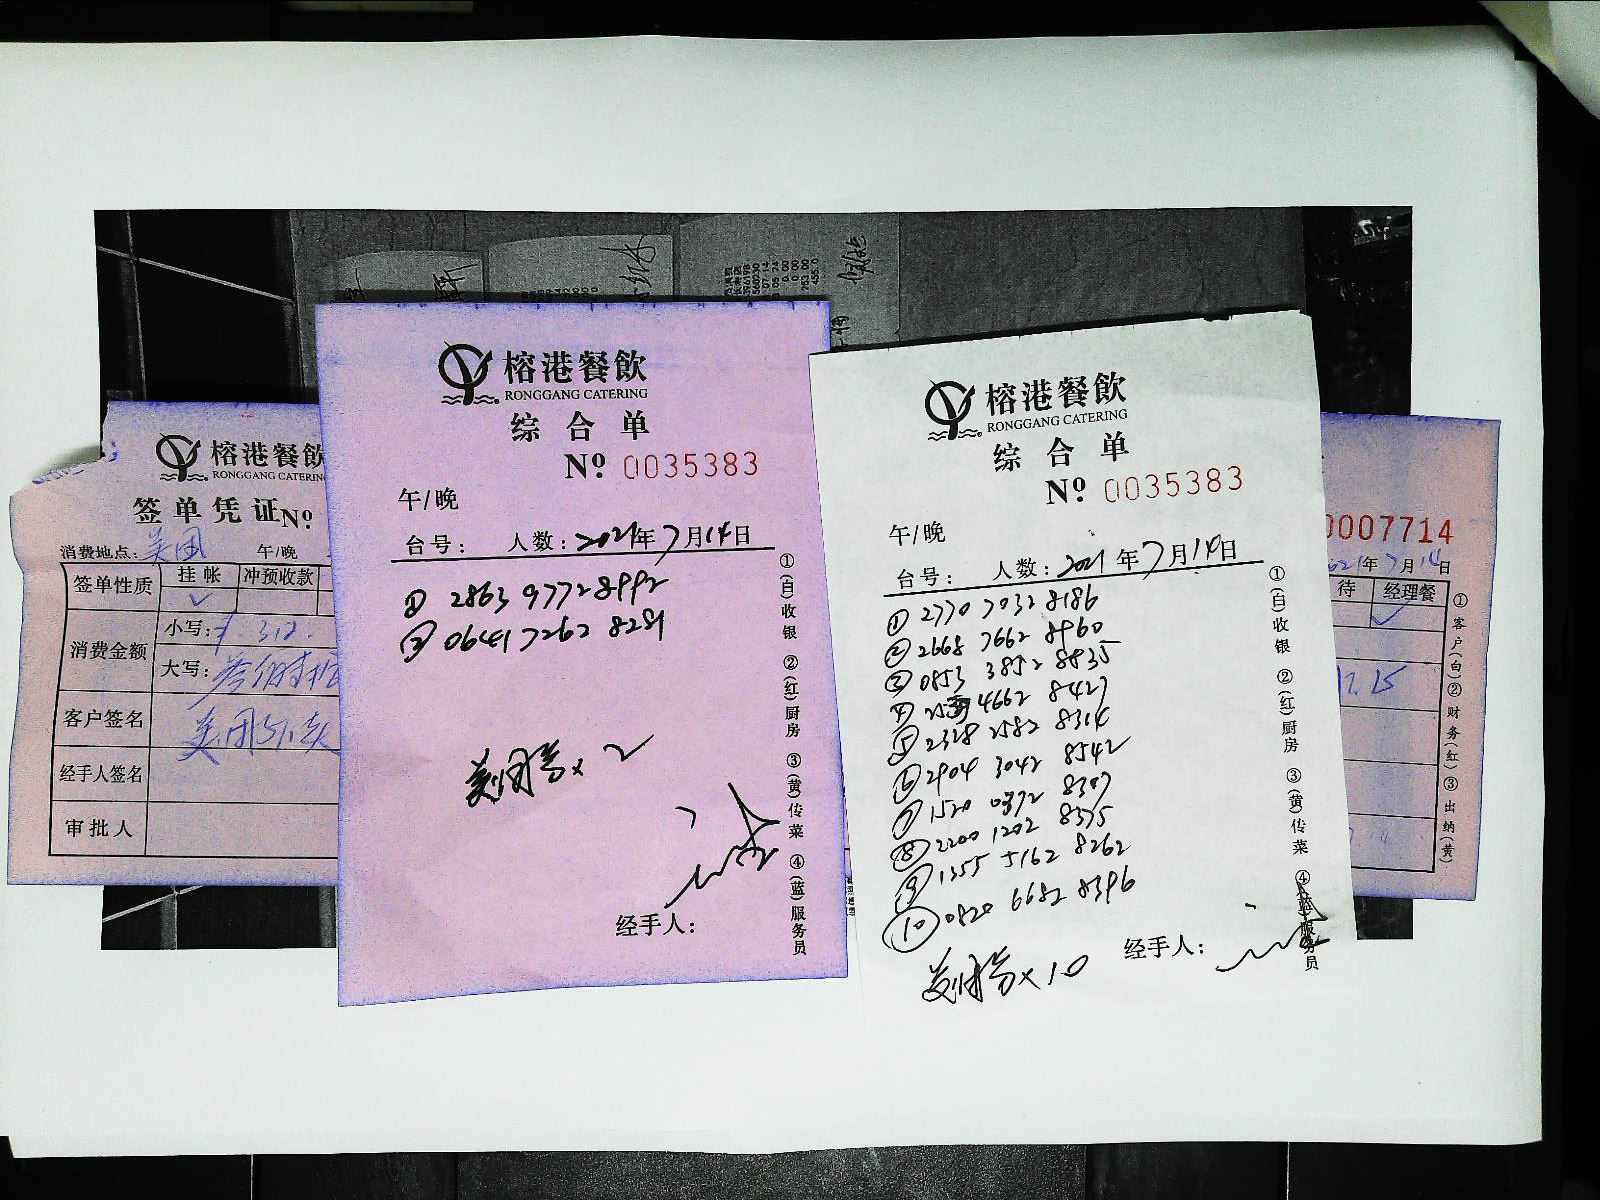 榕港餐飲
RONGGANG CATERING
签单凭证 Nº
消费地点: 美团 午/晚
签单性质 挂帐 冲预收款
✓
消费金额 小写:
大写:
客户签名 美团外卖
经手人签名
审批人
榕港餐飲
RONGGANG CATERING
综合单
Nº 0035383
午/晚
台号: 人数: 2021年7月14日
2863 9772 8992
② 0641 7262 8281
美团券×2
经手人:
①(白)收银 ②(红)厨房 ③(黄)传菜 ④(蓝)服务员
榕港餐飲
RONGGANG CATERING
综合单
Nº 0035383
午/晚
台号: 人数: 2021年7月14日
① 2770 7032 8186
② 2668 7662 8960
③ 0853 3852 8835
④ 4662 8427
⑤ 2328 2582 8314
⑥ 2904 3042 8542
⑦ 1520 0372 8307
⑧ 2200 1202 8375
⑨ 1355 5162 8262
⑩ 0820 6682 8396
美团券×10
经手人:
①(白)收银 ②(红)厨房 ③(黄)传菜 ④(蓝)服务员
0007714
21年7月14日
待 经理餐
✓
①客户(白)②财务(红)③出纳(黄)